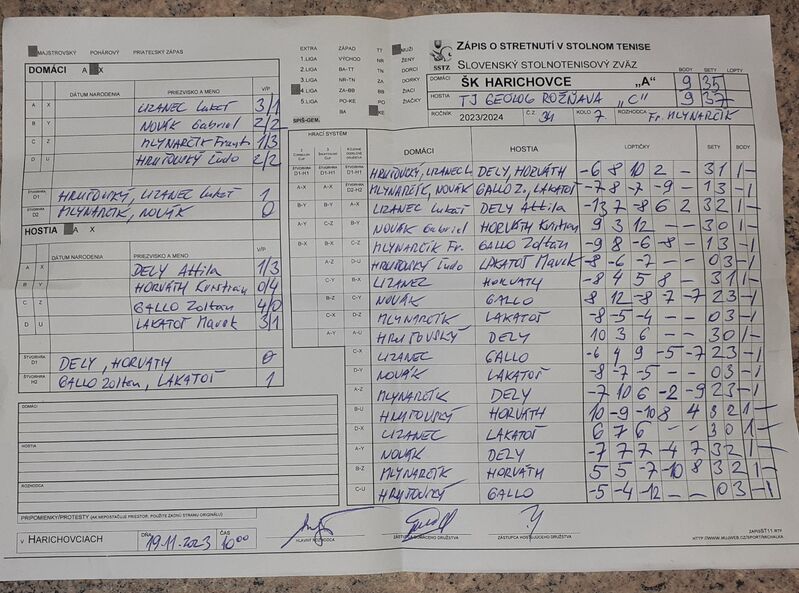 MAJSTROVSKÝ POHÁROVÝ PRIATEĽSKÝ ZÁPAS
DOMÁCI A X
DÁTUM NARODENIA PRIEZVISKO A MENO V/P
A X LIZANEC Lukáš 3/1
B Y NOVÁK Gabriel 2/2
C Z MLYNARČÍK Frant. 1/3
D U HRUŤOVSKÝ Ľudo 2/2
ŠTVORHRA D1 HRUŤOVSKÝ, LIZANEC Lukáš 1
ŠTVORHRA D2 MLYNARČÍK, NOVÁK 0
HOSTIA A X
DÁTUM NARODENIA PRIEZVISKO A MENO V/P
A X DELY Attila 1/3
B Y HORVÁTH Kristián 0/4
C Z GALLO Zoltán 4/0
D U LAKATOŠ Marek 3/1
ŠTVORHRA DELY, HORVÁTH 0
ŠTVORHRA H2 GALLO Zoltán, LAKATOŠ 1
DOMÁCI
HOSTIA
ROZHODCA
PRIPOMIENKY/PROTESTY (AK NEPOSTAČUJE PRIESTOR, POUŽITE ZADNÚ STRANU ORIGINÁLU)
V HARICHOVCIACH DŇA 19.11.2023 ČAS 10:00
HLAVNÝ ROZHODCA ZÁSTUPCA DOMÁCEHO DRUŽSTVA ZÁSTUPCA HOSŤUJÚCEHO DRUŽSTVA
EXTRA ZÁPAD TT MUŽI
1.LIGA VÝCHOD NR ŽENY
2.LIGA BA-TT TN DORCI
3.LIGA NR-TN ZA DORKY
4.LIGA ZA-BB BB ŽIACI
5.LIGA PO-KE PO ŽIAČKY
SPIŠ-GEM. BA
SSTZ
ZÁPIS O STRETNUTÍ V STOLNOM TENISE
SLOVENSKÝ STOLNOTENISOVÝ ZVÄZ
BODY SETY LOPTY
DOMÁCI ŠK HARICHOVCE „A“ 9 35
HOSTIA TJ GEOLÓG ROŽŇAVA „C“ 9 37
ROČNÍK 2023/2024 Č.Z. 34 KOLO 7 ROZHODCA Fr. MLYNARČÍK
HRACÍ SYSTÉM DOMÁCI HOSTIA LOPTIČKY SETY BODY
D1-H1 D1-H1 HRUŤOVSKÝ, LIZANEC L. DELY, HORVÁTH -6 8 10 2 - 3 1 1 -
A-X A-X D2-H2 MLYNARČÍK, NOVÁK GALLO Z., LAKATOŠ -7 8 -7 -9 - 1 3 - 1
B-Y B-Y A-X LIZANEC Lukáš DELY Attila -13 7 -8 6 2 3 2 1 -
A-Y C-Z B-Y NOVÁK Gabriel HORVÁTH Kristian 9 3 12 - - 3 0 1 -
B-X B-X C-Z MLYNARČÍK Fr. GALLO Zoltán -9 8 -6 -8 - 1 3 - 1
A-Z D-U HRUŤOVSKÝ Ľudo LAKATOŠ Marek -8 -6 -7 - - 0 3 - 1
C-Y B-X LIZANEC HORVÁTH -8 4 5 8 - 3 1 1 -
B-Z C-Y NOVÁK GALLO 8 12 -8 -7 -7 2 3 - 1
C-X D-Z MLYNARČÍK LAKATOŠ -8 -5 -4 - - 0 3 - 1
A-Y A-U HRUŤOVSKÝ DELY 10 3 6 - - 3 0 1 -
C-X LIZANEC GALLO -6 4 9 -5 -7 2 3 - 1
D-Y NOVÁK LAKATOŠ -8 -7 -5 - - 0 3 - 1
A-Z MLYNARČÍK DELY -7 10 6 -2 -9 2 3 - 1
B-U HRUŤOVSKÝ HORVÁTH 10 -9 -10 8 4 3 2 1 -
D-X LIZANEC LAKATOŠ 6 7 6 - - 3 0 1 -
A-Y NOVÁK DELY -7 7 7 -4 7 3 2 1 -
B-Z MLYNARČÍK HORVÁTH 5 5 -7 -10 8 3 2 1 -
C-U HRUŤOVSKÝ GALLO -5 -4 -12 - - 0 3 - 1
ZAPISST11.RTF
HTTP://WWW.MUJWEB.CZ/SPORT/VACHALKA